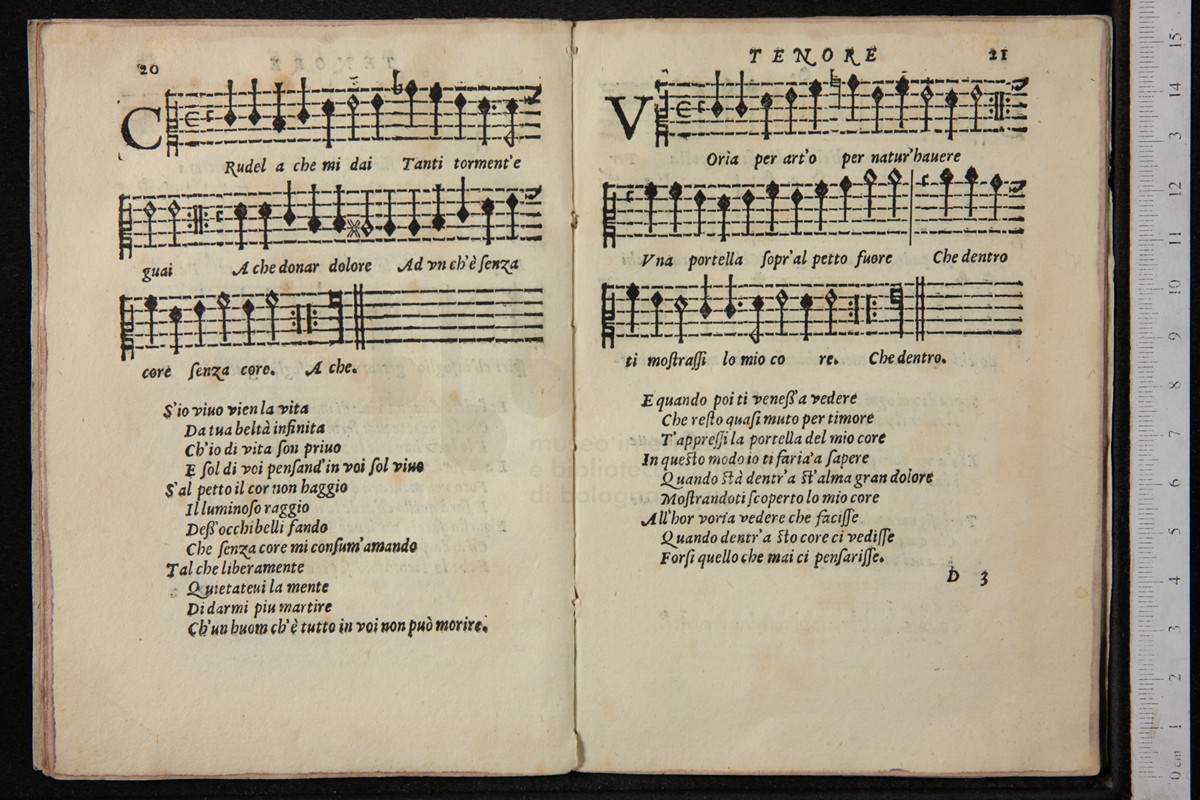 20
C
Rudel a che mi dai Tanti torment'e
guai A che donar dolore Ad vn ch'è ſenza
core ſenza core. A che.
S'io viuo vien la vita
Da tua beltà infinita
Ch'io di vita ſon priuo
E ſol di voi penſand'in voi ſol viuo
S'al petto il cor non haggio
Il luminoſo raggio
Deſſ'occhi belli fando
Che ſenza core mi conſum'amando
Tal che liberamente
Quietateui la mente
Di darmi piu martire
Ch'un huom ch'è tutto in voi non può morire.
TENORE 21
V
Oria per art'o per natur'hauere
Vna portella ſopr'al petto fuore Che dentro
ti moſtraſſi lo mio core. Che dentro.
E quando poi ti veneſſ'a vedere
Che reſto quaſi muto per timore
T'appreſſi la portella del mio core
In queſto modo io ti faria'a ſapere
Quando ſtà dentr'a ſt'alma gran dolore
Moſtrandoti ſcoperto lo mio core
All'hor voria vedere che faciſſe
Quando dentr'a ſto core ci vediſſe
Forſi quello che mai ci penſariſſe.
D 3
museo in
e bibliotec
di bologna
15
14
13
12
11
10
9
8
7
6
5
4
3
2
1
0 cm